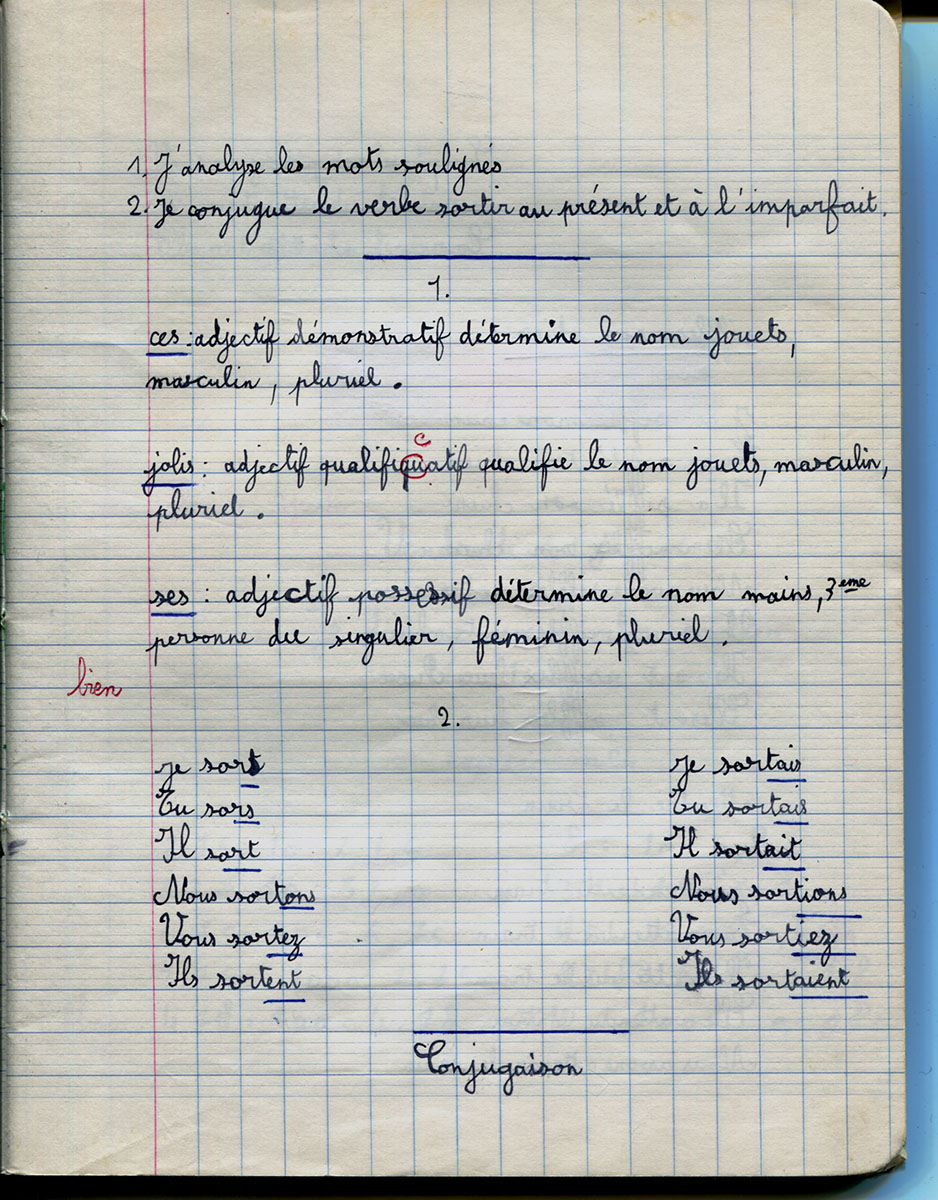 1. J'analyse les mots soulignés
2. Je conjugue le verbe sortir au présent et à l'imparfait.
1.
ces : adjectif démonstratif détermine le nom jouets,
masculin, pluriel.
c
jolis : adjectif qualifiquatif qualifie le nom jouets, masculin,
pluriel.
ses : adjectif possessif détermine le nom mains, 3eme
personne du singulier, féminin, pluriel.
bien
2.
Je sors Je sortais
Tu sors Tu sortais
Il sort Il sortait
Nous sortons Nous sortions
Vous sortez Vous sortiez
Ils sortent Ils sortaient
Conjugaison